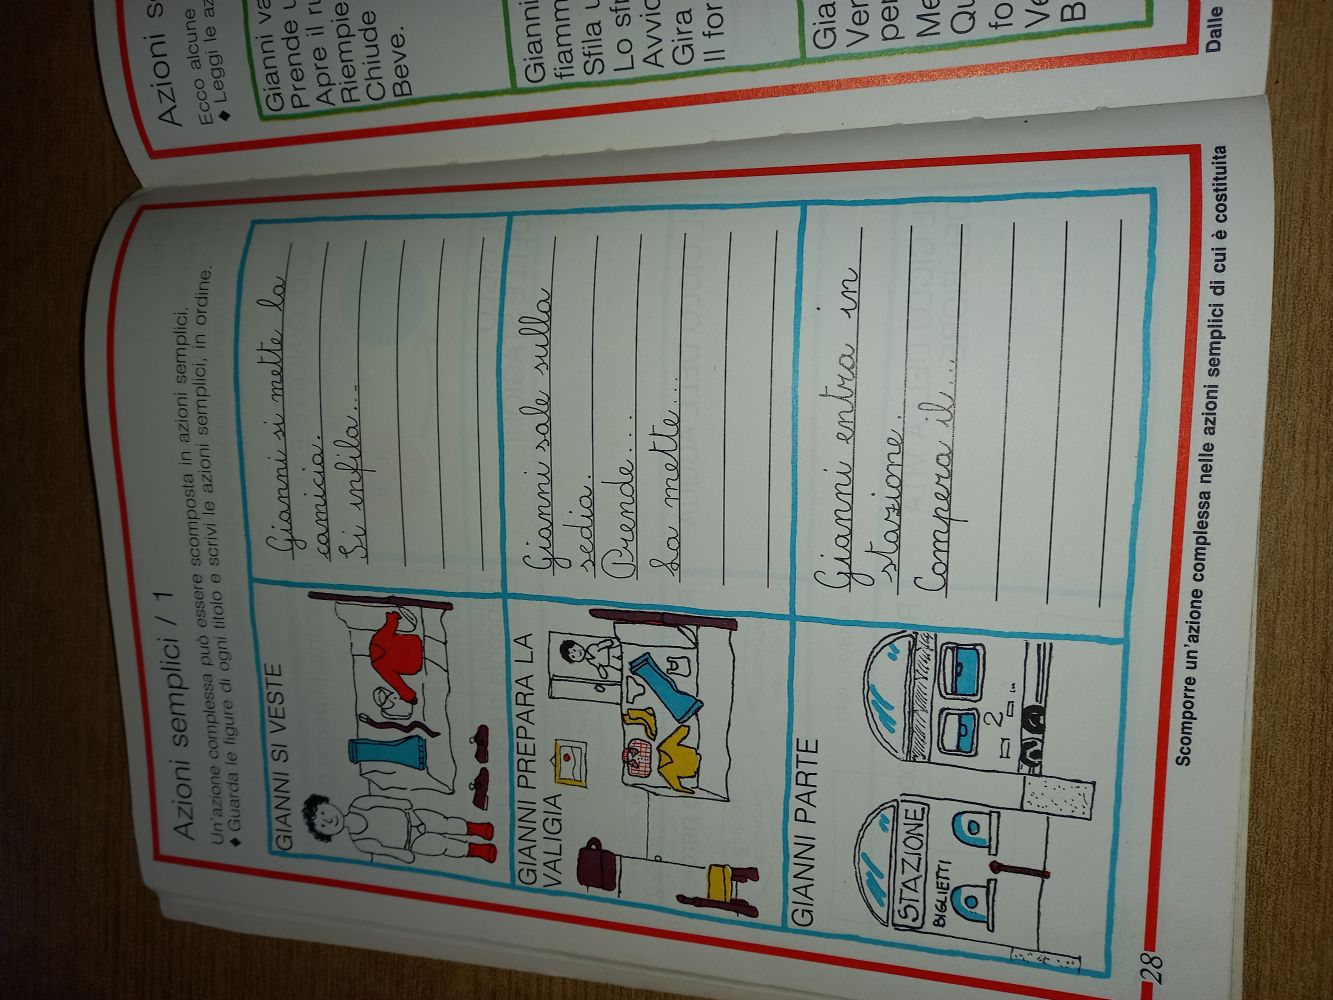 Azioni semplici / 1
Un'azione complessa può essere scomposta in azioni semplici.
◆ Guarda le figure di ogni titolo e scrivi le azioni semplici, in ordine.
GIANNI SI VESTE
Gianni si mette la
camicia.
Si infila...
GIANNI PREPARA LA
VALIGIA
Gianni sale sulla
sedia.
Prende...
La mette...
GIANNI PARTE
STAZIONE
BIGLIETTI
2
Gianni entra in
stazione.
Compera il...
28
Scomporre un'azione complessa nelle azioni semplici di cui è costituita
Azioni
Ecco alcune
◆ Leggi le
Gianni
Prende
Apre il
Riempie
Chiude
Beve.
Gianni
Sfila
Lo
Gira
Il
Dalle